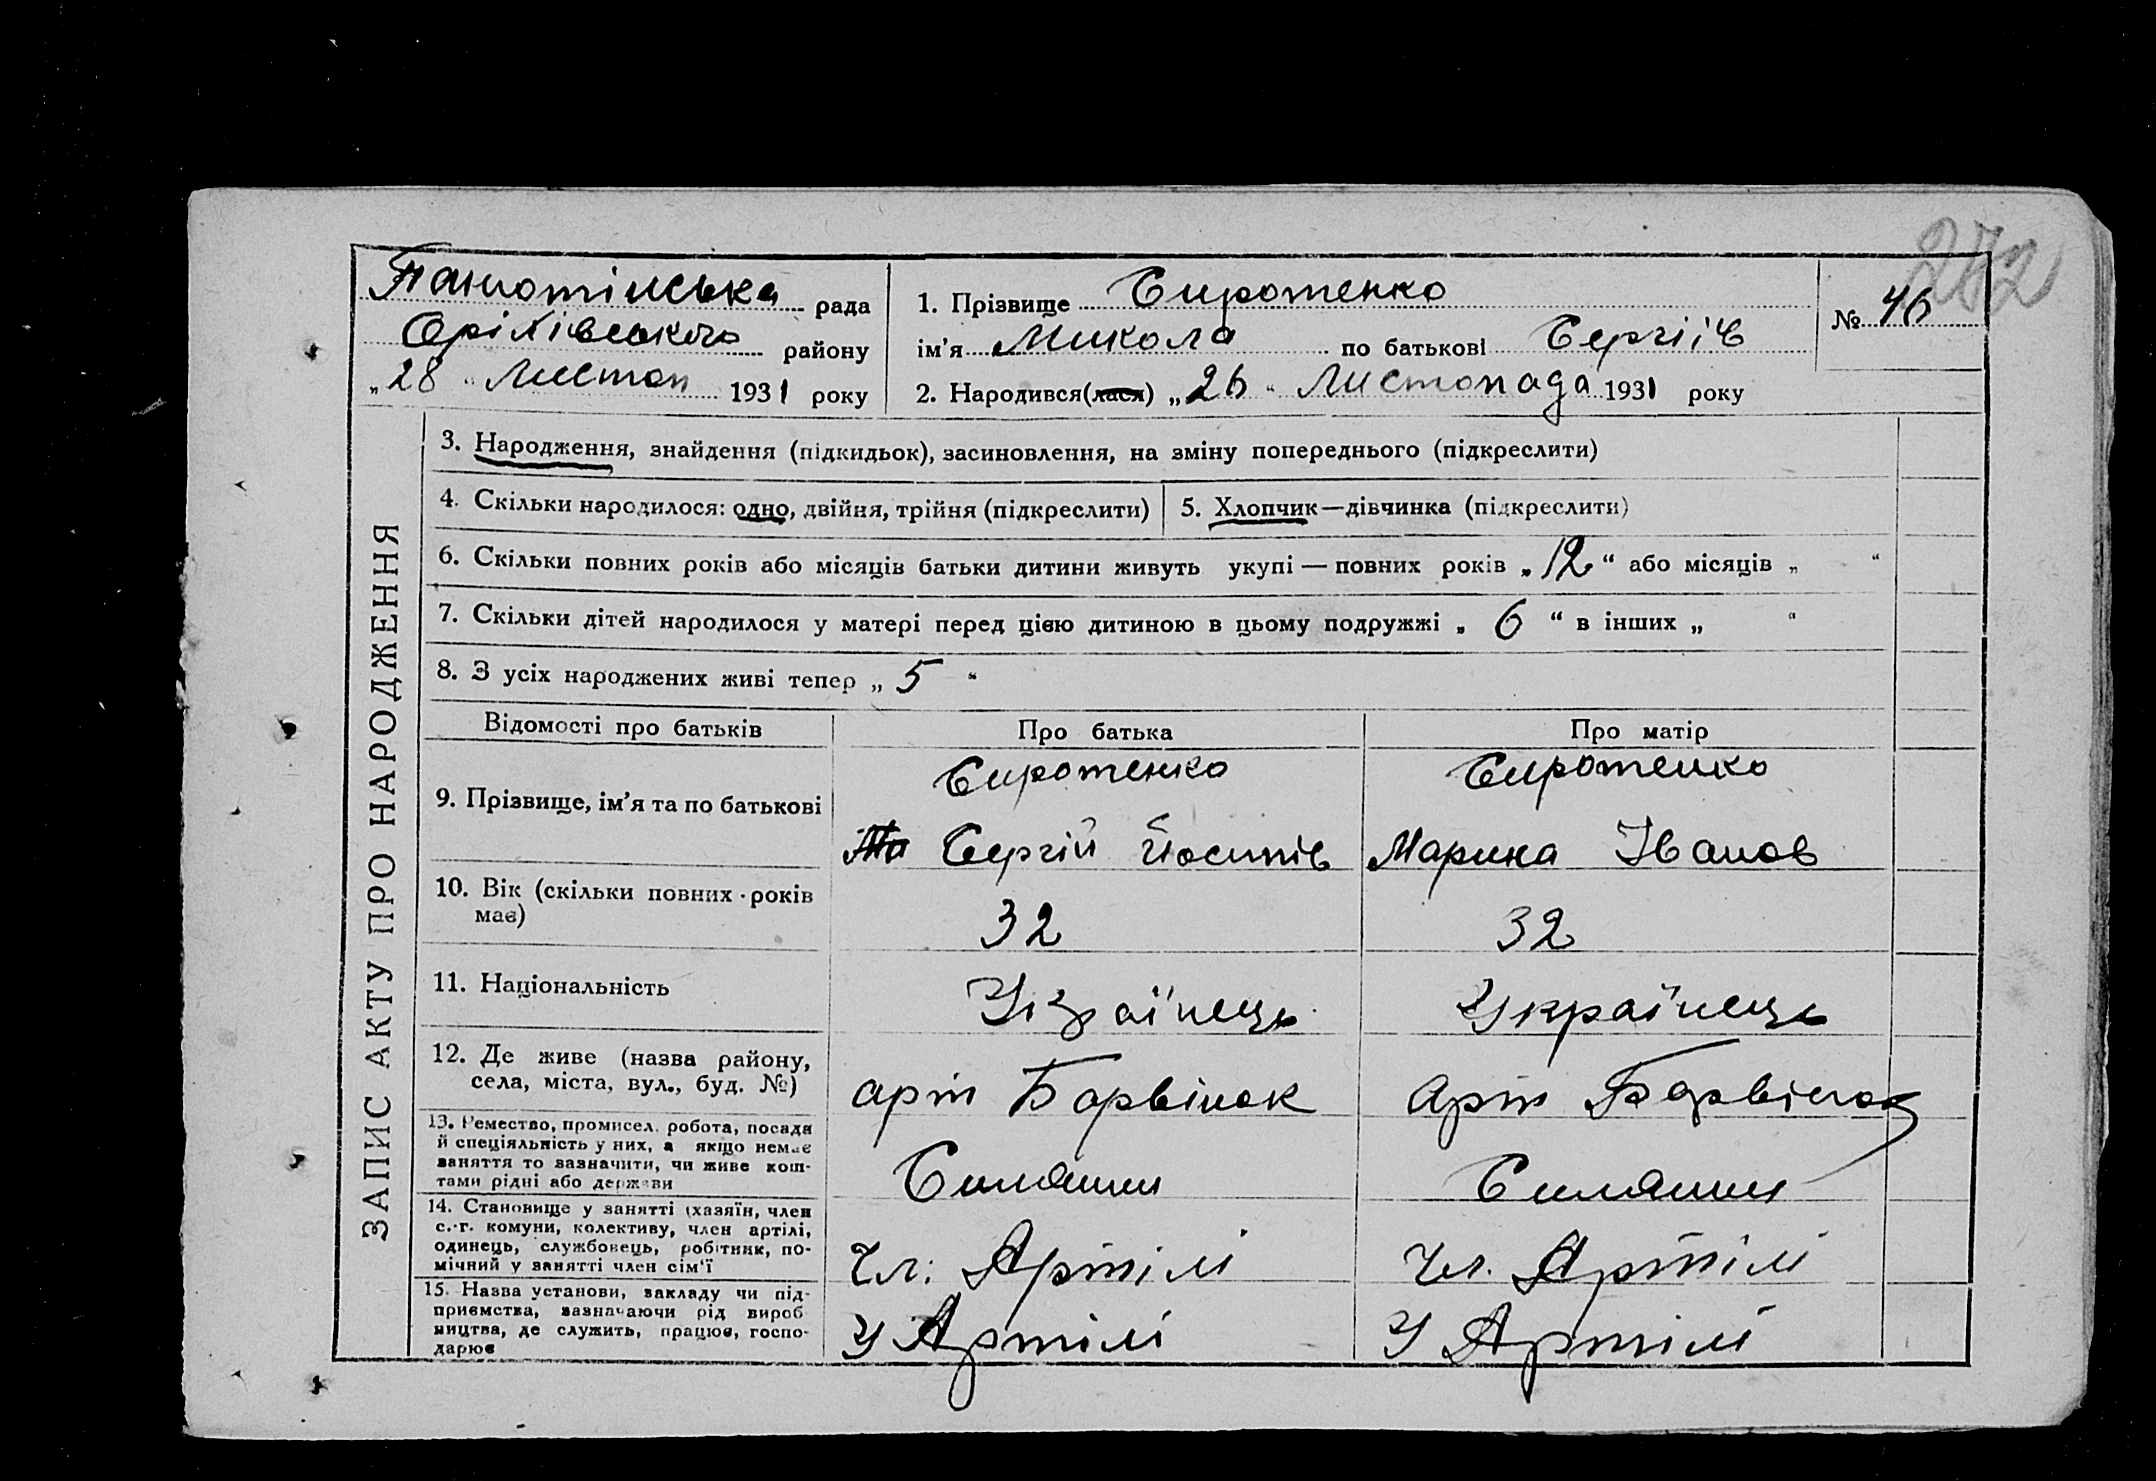 272
рада
Оріхівського району
„28“ Листоп 1931 року
1. Прізвище Сиротенко
ім’я Микола по батькові Сергіів
2. Народився(лася) „26“ Листопада 1931 року
№ 46
ЗАПИС АКТУ ПРО НАРОДЖЕННЯ
3. Народження, знайдення (підкидьок), засиновлення, на зміну попереднього (підкреслити)
4. Скільки народилося: одно, двійня, трійня (підкреслити)
5. Хлопчик—дівчинка (підкреслити)
6. Скільки повних років або місяців батьки дитини живуть укупі — повних років „12“ або місяців „ “
7. Скільки дітей народилося у матері перед цією дитиною в цьому подружжі „6“ в інших „ “
8. З усіх народжених живі тепер „5“
Відомості про батьків
Про батька
Про матір
9. Прізвище, ім’я та по батькові
Сиротенко
Сергій Йосипів
Сиротенко
Марина Іванов
10. Вік (скільки повних років
має)
32
32
11. Національність
Українець
Українець
12. Де живе (назва району,
села, міста, вул., буд. №)
арт Барвінок
арт Барвінок
13. Ремество, промисел. робота, посада
й спеціяльність у них, а якщо немає
заняття то зазначити, чи живе кош-
тами рідні або держави
14. Становище у занятті (хазяїн, член
с.-г. комуни, колективу, член артілі,
одинець, службовець, робітник, по-
мічний у занятті член сім’ї
Чл. Артілі
Чл. Артілі
15. Назва установи, закладу чи під-
приємства, зазначаючи рід вироб
ництва, де служить, працює, госпо-
дарює
У Артілі
У Артілі